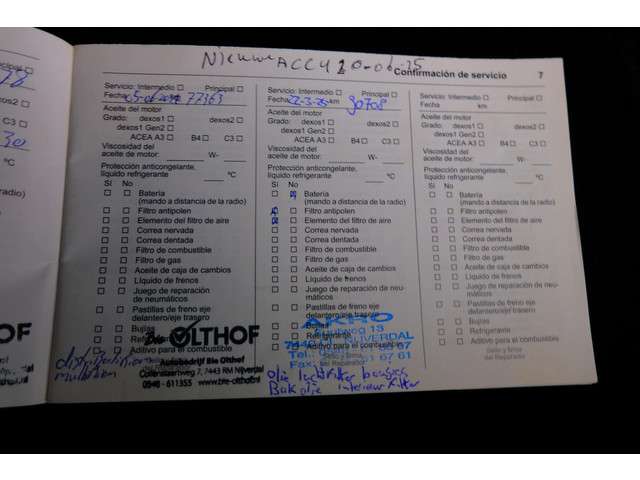 Nieuwe ACCU 20-06-25
Confirmación de servicio 7
Servicio: Intermedio □ Principal □
Fecha 77363
Aceite del motor
Grado: dexos1 □ dexos2 □
dexos1 Gen2 □
ACEA A3 □ B4 □ C3 □
Viscosidad del
aceite de motor: W-
Protección anticongelante,
líquido refrigerante °C
Sí No
□ □ Batería
(mando a distancia de la radio)
□ □ Filtro antipolen
□ □ Elemento del filtro de aire
□ □ Correa nervada
□ □ Correa dentada
□ □ Filtro de combustible
□ □ Filtro de gas
□ □ Aceite de caja de cambios
□ □ Líquido de frenos
□ □ Juego de reparación
de neumáticos
□ □ Pastillas de freno eje
delantero/eje trasero
□ □ Bujías
□ □
□ □ Aditivo para el combustible
Bie OLTHOF
Autobedrijf Bie Olthof
7, 7443 RM Nijverdal
0548 - 611355 www.bie-olthof.nl
Servicio: Intermedio □ Principal □
Fecha 22-3-25 km 90708
Aceite del motor
Grado: dexos1 □ dexos2 □
dexos1 Gen2 □
ACEA A3 □ B4 □ C3 □
Viscosidad del
aceite de motor: W-
Protección anticongelante,
líquido refrigerante °C
Sí No
□ Batería
(mando a distancia de la radio)
□ Filtro antipolen
□ Elemento del filtro de aire
□ □ Correa nervada
□ □ Correa dentada
□ □ Filtro de combustible
□ □ Filtro de gas
□ □ Aceite de caja de cambios
□ □ Líquido de frenos
□ □ Juego de reparación de neu-
máticos
□ □ Pastillas de freno eje
delantero/eje trasero
□ □
□ □ Refrigerante
□ □ Aditivo para el combustible
AKRO
13
Tel.
Fax 61
olie luchtfilter bougies
interieur filter
Servicio: Intermedio □ Principal □
Fecha km
Aceite del motor
Grado: dexos1 □ dexos2 □
dexos1 Gen2 □
ACEA A3 □ B4 □ C3 □
Viscosidad del
aceite de motor: W-
Protección anticongelante,
líquido refrigerante °C
Sí No
□ □ Batería
(mando a distancia de la radio)
□ □ Filtro antipolen
□ □ Elemento del filtro de aire
□ □ Correa nervada
□ □ Correa dentada
□ □ Filtro de combustible
□ □ Filtro de gas
□ □ Aceite de caja de cambios
□ □ Líquido de frenos
□ □ Juego de reparación de neu-
máticos
□ □ Pastillas de freno eje
delantero/eje trasero
□ □ Bujías
□ □ Refrigerante
□ □ Aditivo para el combustible
Sello y firma
del Reparador